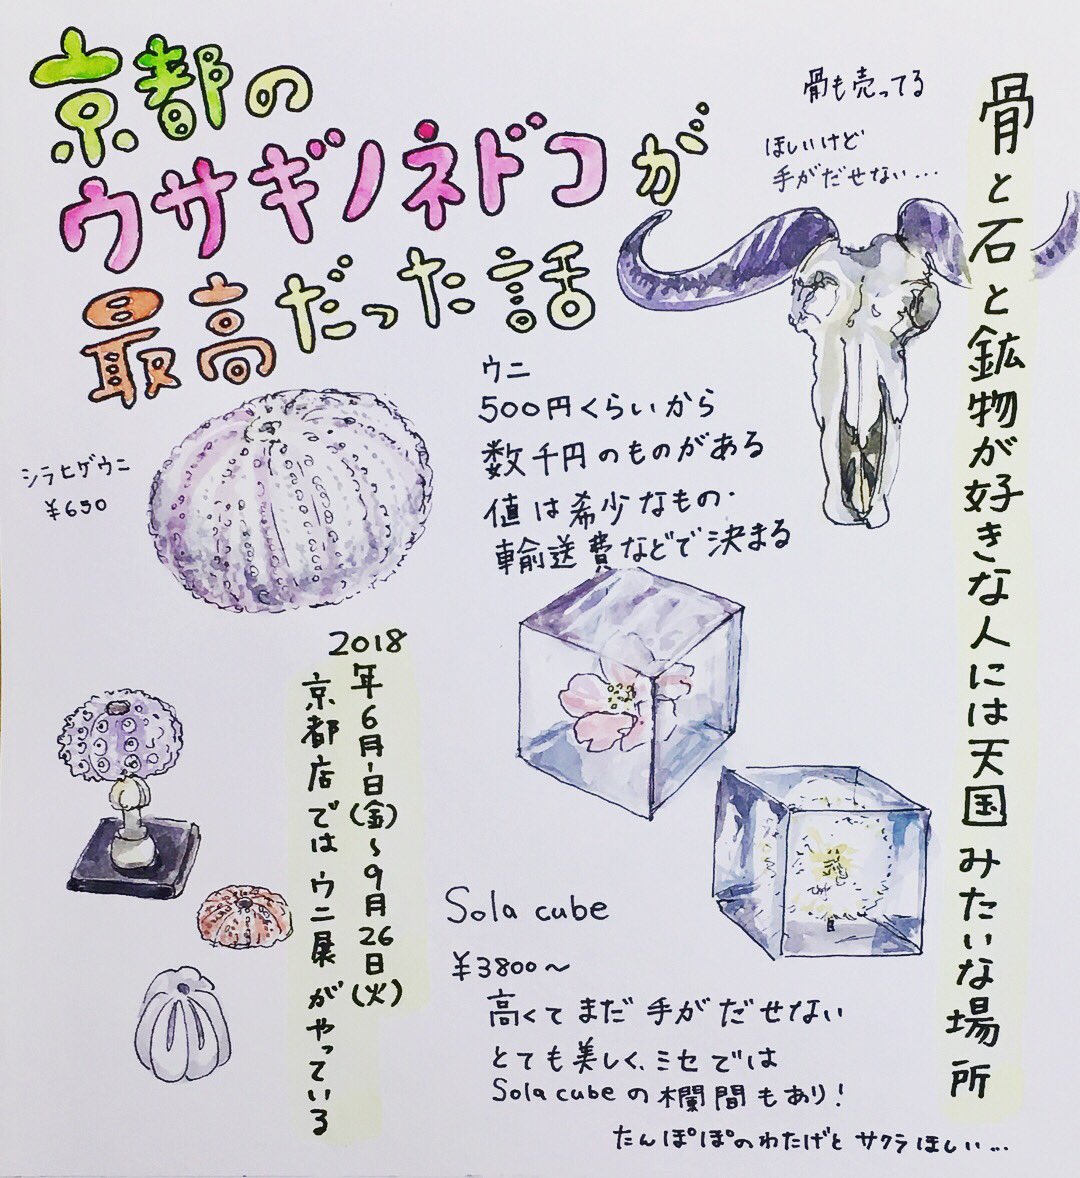 京都の
ウサギノネドコが
最高だった話
骨も売ってる
ほしいけど
手がだせない…
骨と石と鉱物が好きな人には天国みたいな場所
シラヒゲウニ
¥650
ウニ
500円くらいから
数千円のものがある
値は希少なもの・
輸送費などで決まる
2018
年6月1日(金)〜9月26日(火)
京都店ではウニ展がやっている
Sola cube
¥3800〜
高くてまだ手がだせない
とても美しく、ミセでは
Sola cubeの欄間もあり!
たんぽぽのわたげとサクラほしい…